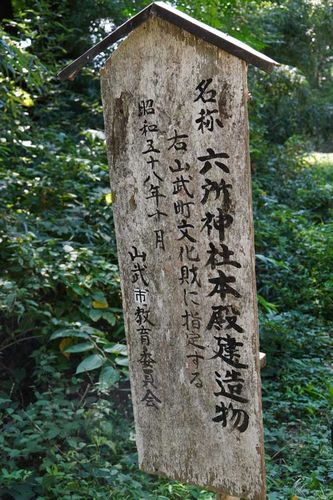 名称 六所神社本殿建造物
右山武町文化財に指定する
昭和五十八年十月
山武市教育委員会